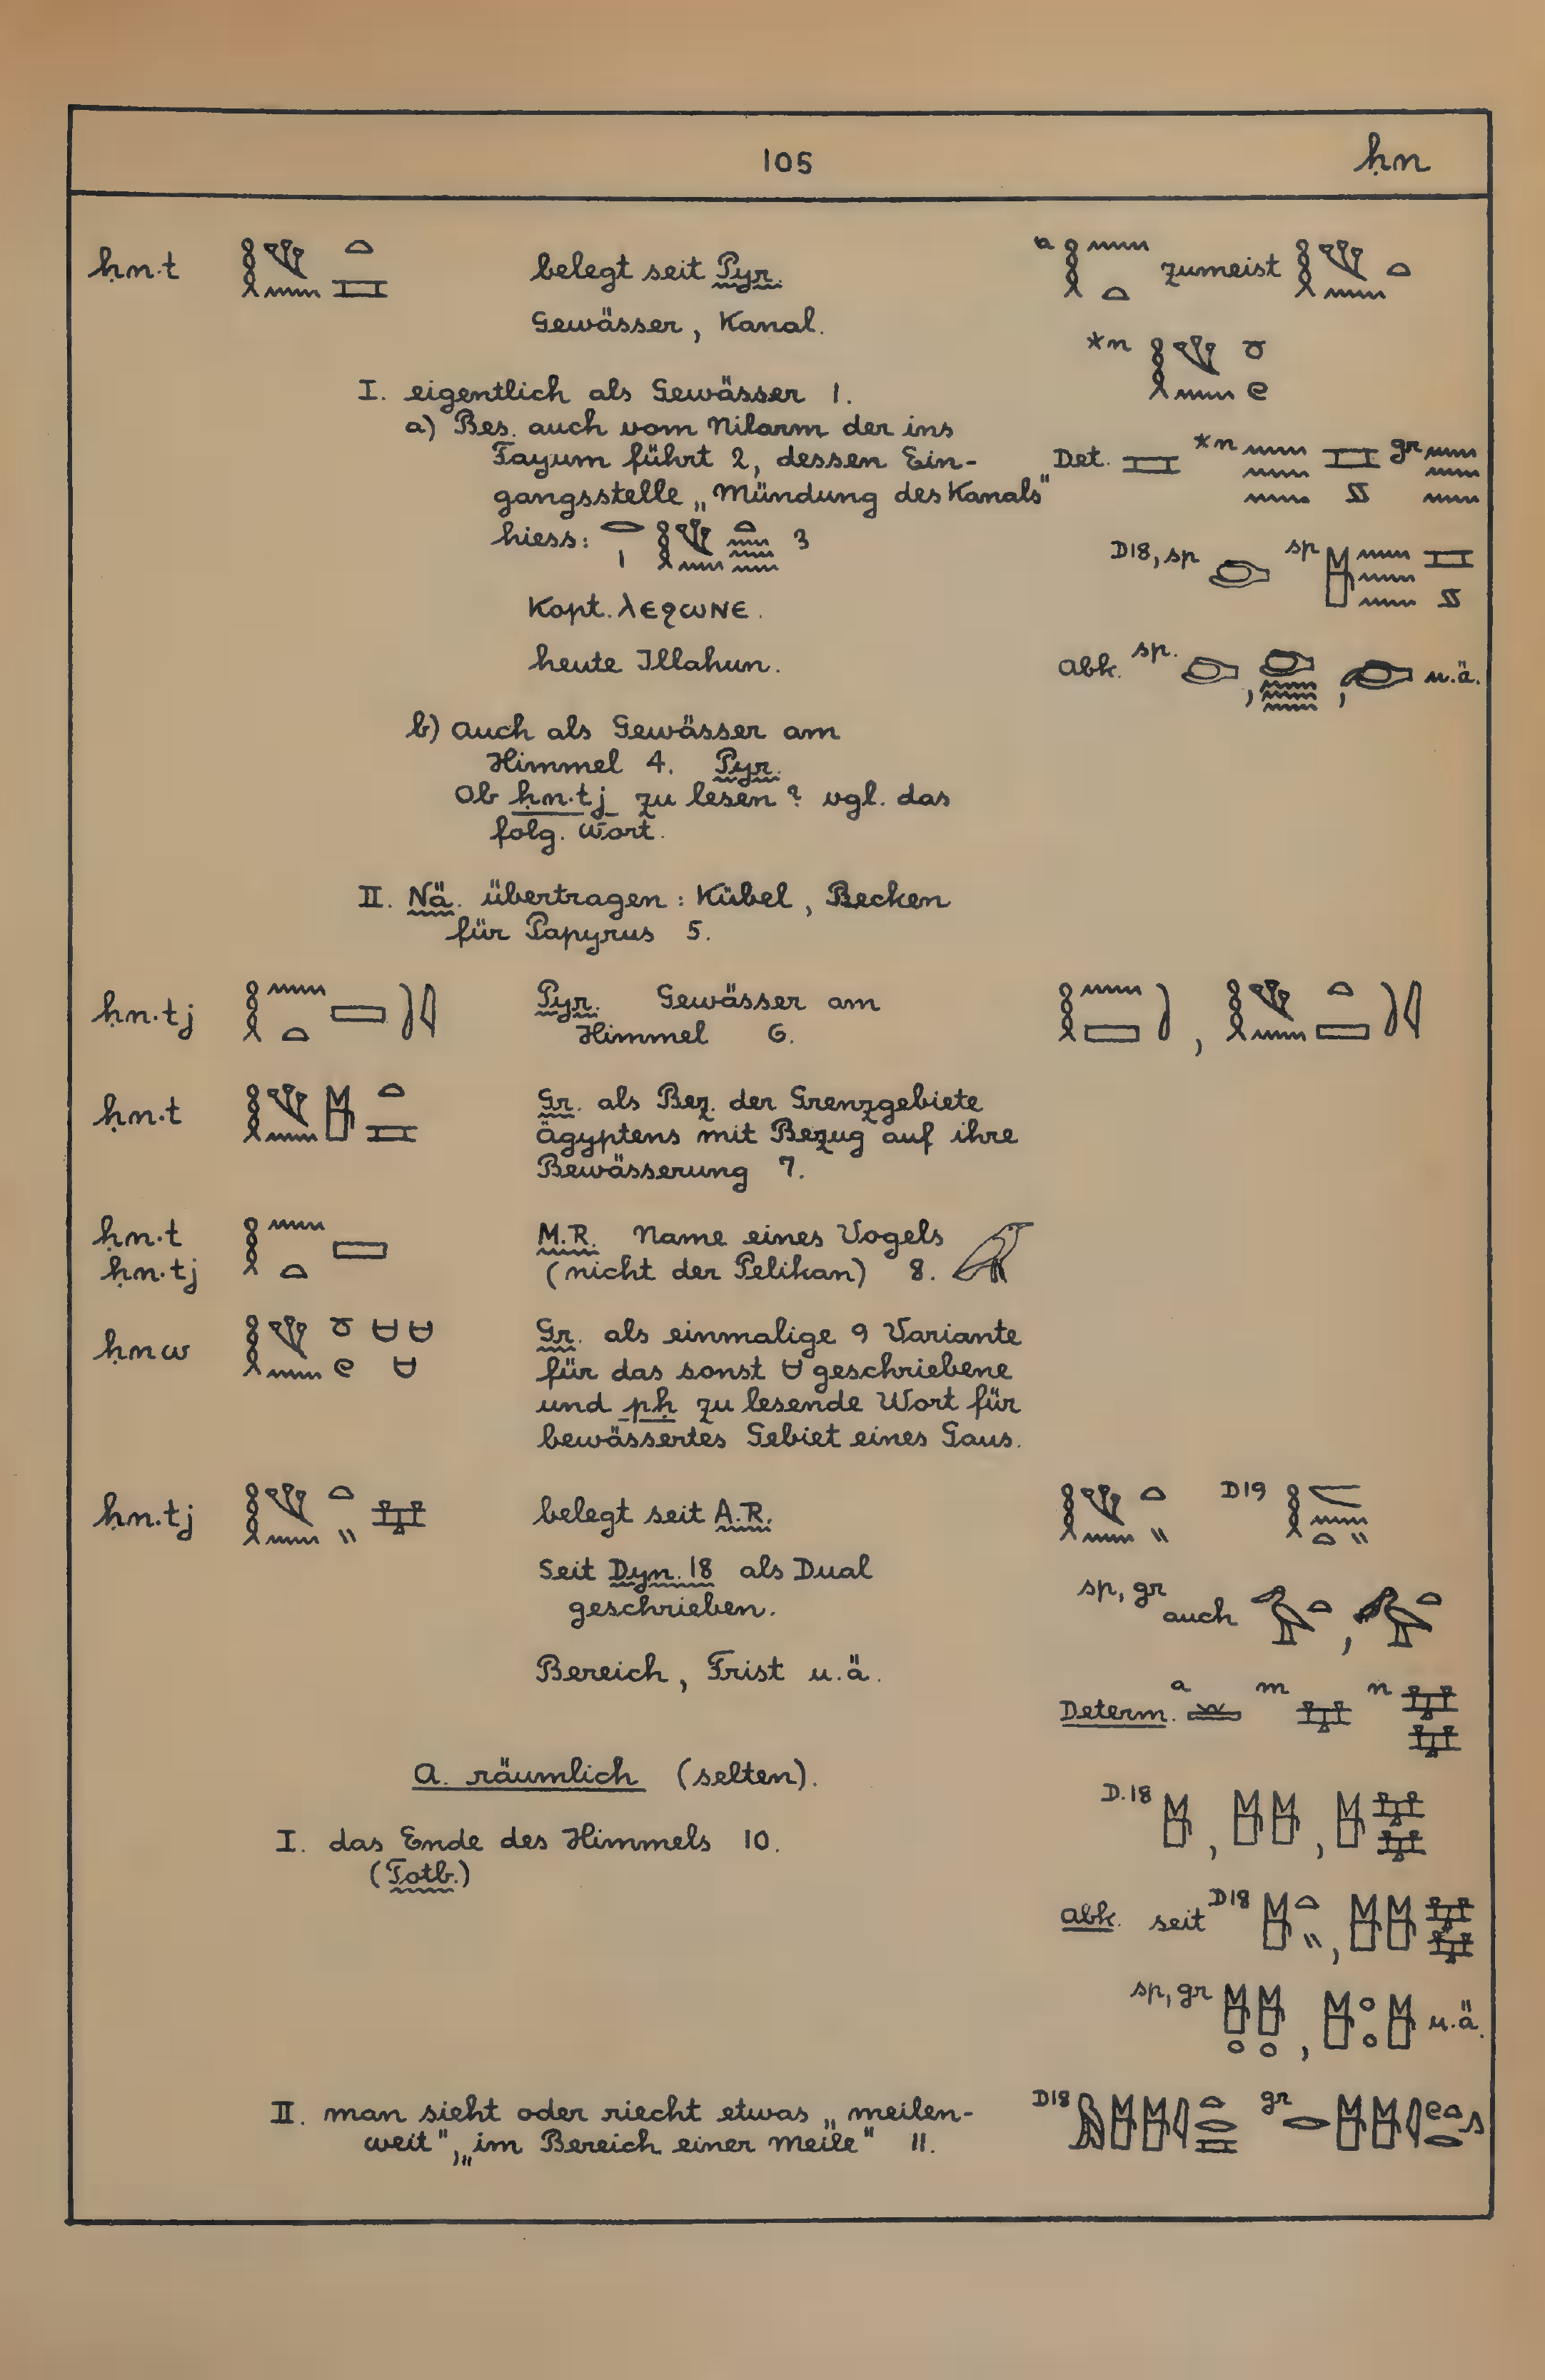 105
ḥn
ḥn·t
belegt seit Pyr.
Gewässer, Kanal.
a
zumeist
*n
I. eigentlich als Gewässer 1.
a) Bes. auch vom Nilarm der ins
Fayum führt 2, dessen Ein-
gangsstelle „Mündung des Kanals"
hiess: 3
Kopt. ⲗⲉϩⲱⲛⲉ.
heute Illahun.
Det. *n gr
D18, sp sp
Abk. sp. , , u.ä.
b) Auch als Gewässer am
Himmel 4. Pyr.
Ob ḥn·tj zu lesen? vgl. das
folg. Wort.
II. Nä. übertragen: Kübel, Becken
für Papyrus 5.
ḥn·tj
Pyr. Gewässer am
Himmel 6.
,
ḥn·t
Gr. als Bez. der Grenzgebiete
Ägyptens mit Bezug auf ihre
Bewässerung 7.
ḥn·t
ḥn·tj
M.R. Name eines Vogels
(nicht der Pelikan) 8.
ḥnw
Gr. als einmalige 9 Variante
für das sonst geschriebene
und pḥ zu lesende Wort für
bewässertes Gebiet eines Gaus.
ḥn·tj
belegt seit A.R.
Seit Dyn. 18 als Dual
geschrieben.
Bereich, Frist u.ä.
D19
sp, gr auch ,
Determ. a m n
A. räumlich (selten).
I. das Ende des Himmels 10.
(Totb.)
D.18 , ,
Abk. seit D18 ,
sp, gr , u.ä.
II. man sieht oder riecht etwas „meilen-
weit", „im Bereich einer Meile" 11.
D18 gr